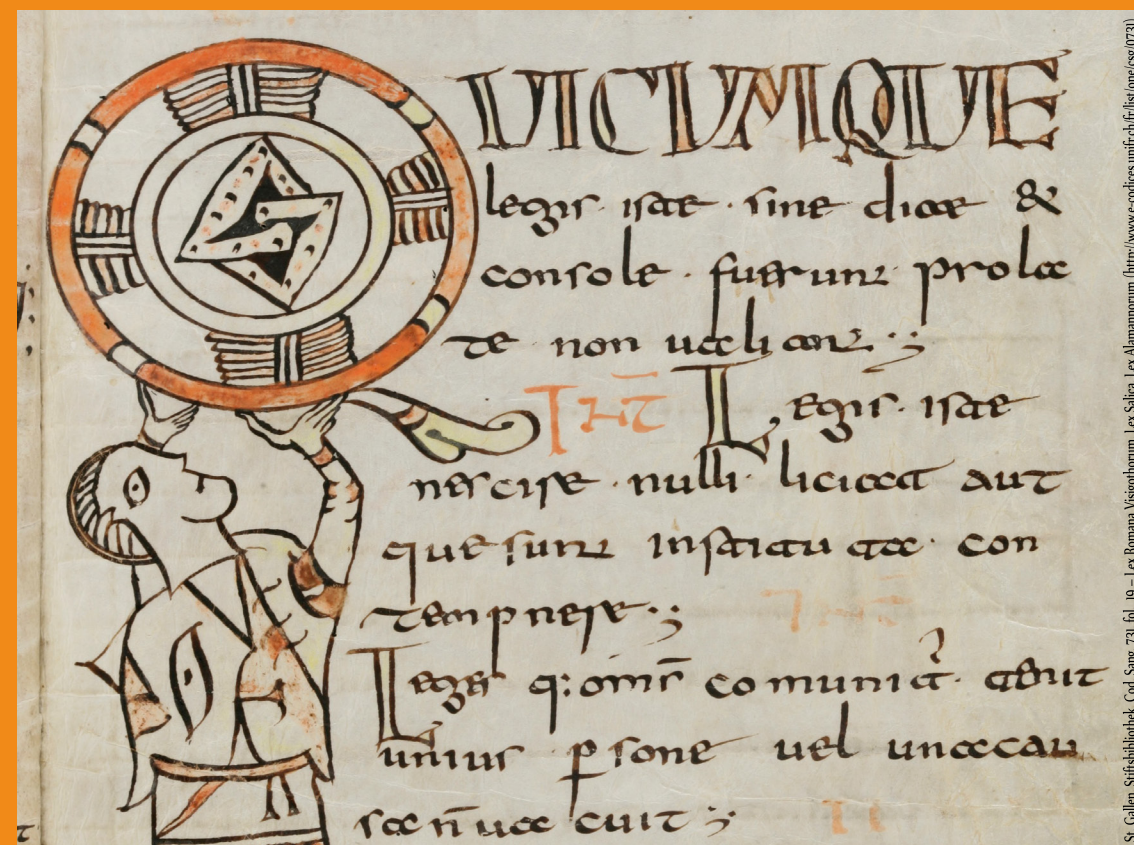 QUICUMQUE
legis iste sine diae &
console fuerunt prola
te non ualiant
INT̄ Legis iste
nescire nulli liciat aut
que sunt instituta con
tempnere
Leges q: omīs comunit aut
unius p sone uel una cau
sa n̄
II
St. Gallen, Stiftsbibliothek, Cod. Sang. 731, fol. 19 – Lex Romana Visigothorum, Lex Salica, Lex Alamannorum (http://www.e-codices.unifr.ch/fr/list/one/csg/0731)